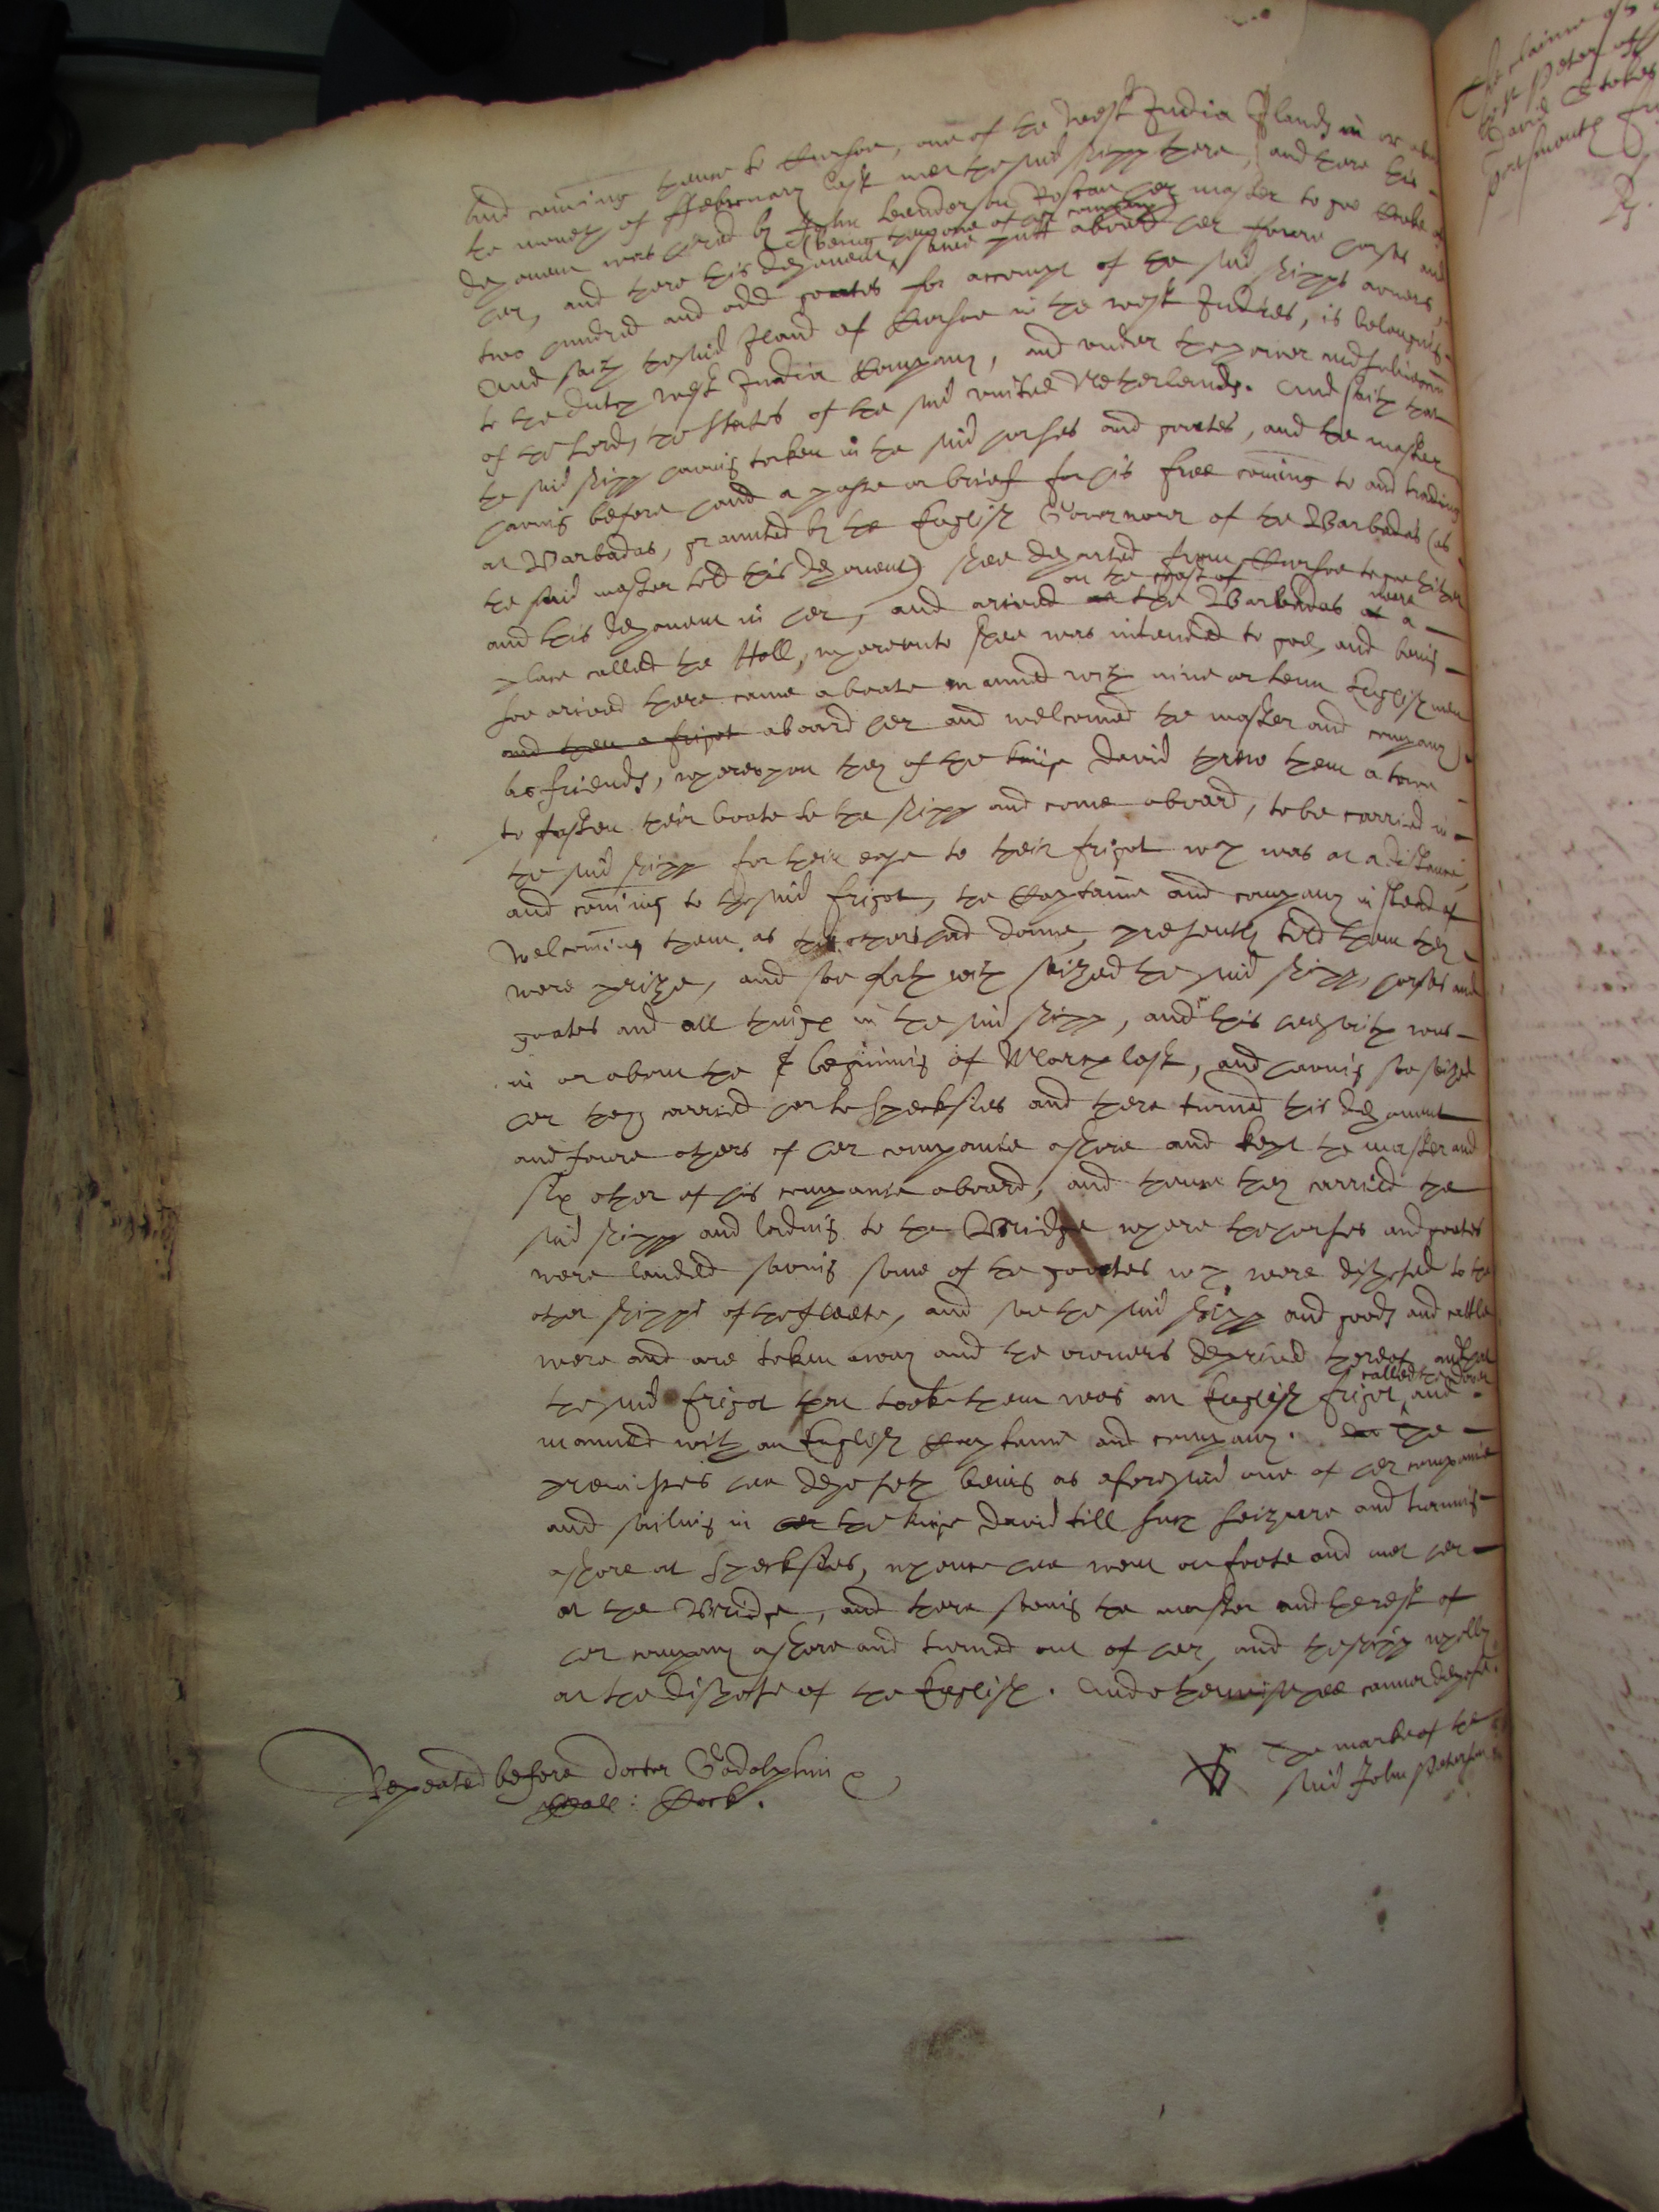 And coming thence to Kursoe, one of the West India Islands in or about
the moneth of ffebruary last met the said shipp there, and there this
deponent was hired by John Leanderson her master to goe Cooke of
her, and there this deponent (being then one of her company) sawe putt aboard her fowre horses and
two hundred and odd goates for accompt of the said shipps owners,
And saith the said Iland of Kursoe in the west Indies, is belonging
to the dutch west India Company, and under the power and
of the Lords the States of the said united Netherlands. And saith that
the said shipp having taken in the said horses and goates, and the master
having before had a passe or brief for his free coming to and trading
at Barbadas, graunted by the English Governour of the Barbadas (as
the said master told this deponent) shee departed from Kursoe to goe thither
and this deponent in her, and arived on the coast of the Barbadas neere a
place called the Holl, whereunto shee was intended to goe, and being
soe arived there came a boate manned with nine or tenn Englishmen
and then a frigot aboard her and welcomed the master and company
as friends, whereupon they of the kinge David threw them a towe
to fasten their boate to the shipp and come aboard, to be carried in
the said shipp for their ease to their frigot wch was at a distance,
and coming to the said frigot, the Captaine and company in stead of
welcoming them as the others had donne, presently told them they
were prize, and soe forthwith seized the said shipp, horses and
goates and all things in the said shipp, and this hee saith was
in or about the beginning of March last, and having soe seized
her they carried her to Speckstes and there turned this deponent
and fowre others of her companie ashore and kept the master and
six other of his companie aboard, and thence they carried the
said shipp and lading to the Bridge where the horses and goates
were landed saving some of the goates wch were disposed to the
other shipps of the fleete, and soe the said shipp and goods and cattle
were and are taken away and the owners deprived thereof, and that
the said frigot that tooke them was an English frigot called the dover and
manned with an English Captaine and company. The
premisses hee deposeth being as aforesaid one of her companie
and sailing in her the kinge David till such seizure and turning
ashore at Speckstes, whence hee went on foote and met her
at the Bridge, and there seeing the master and the rest of
her company ashore and turned out of her, and the shipp wholly
at the dispose of the English. And otherwise hee cannot depose.
The marke of the
said John Peterson
Repeated before doctor Godolphin
The claime of
Peter
David Stokes